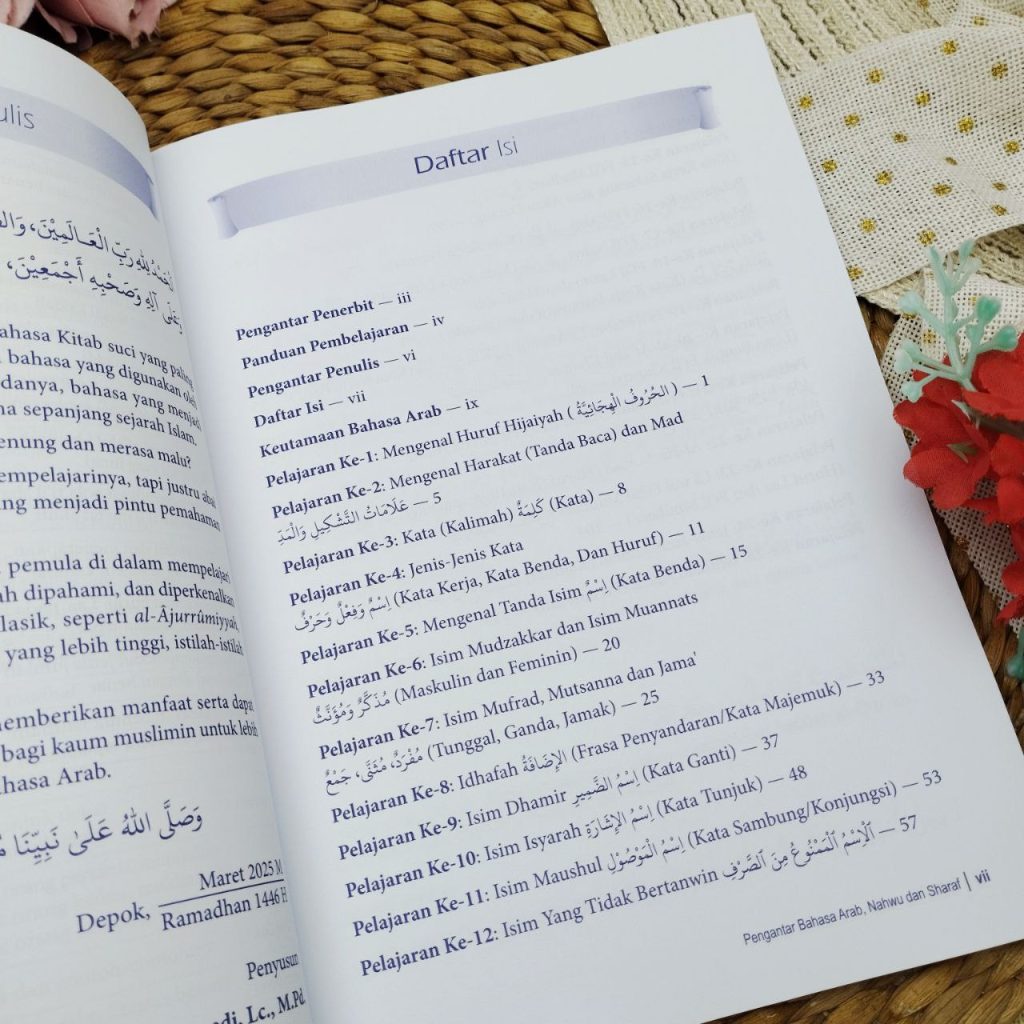 ulis
الْحَمْدُ لِلّٰهِ رَبِّ الْعَالَمِيْنَ،
وَعَلَى آلِهِ وَصَحْبِهِ أَجْمَعِيْنَ،
ahasa Kitab suci yang paling
bahasa yang digunakan oleh
danya, bahasa yang menjadi
na sepanjang sejarah Islam.
enung dan merasa malu?
empelajarinya, tapi justru abai
ng menjadi pintu pemahaman
pemula di dalam mempelajari
ah dipahami, dan diperkenalkan
lasik, seperti al-Âjurrûmiyyah,
yang lebih tinggi, istilah-istilah
memberikan manfaat serta dapat
bagi kaum muslimin untuk lebih
ahasa Arab.
وَصَلَّى اللهُ عَلَىٰ نَبِيِّنَا
Maret 2025 M
Depok, Ramadhan 1446 H
Penyusun
di, Lc., M.Pd.
Daftar Isi
Pengantar Penerbit — iii
Panduan Pembelajaran — iv
Pengantar Penulis — vi
Daftar Isi — vii
Keutamaan Bahasa Arab — ix
Pelajaran Ke-1: Mengenal Huruf Hijaiyah ( الْحُرُوفُ الْهِجَائِيَّةُ ) — 1
Pelajaran Ke-2: Mengenal Harakat (Tanda Baca) dan Mad
عَلَامَاتُ التَّشْكِيلِ وَالْمَدِّ — 5
Pelajaran Ke-3: Kata (Kalimah) كَلِمَةٌ (Kata) — 8
Pelajaran Ke-4: Jenis-Jenis Kata
اِسْمٌ وَفِعْلٌ وَحَرْفٌ (Kata Kerja, Kata Benda, Dan Huruf) — 11
Pelajaran Ke-5: Mengenal Tanda Isim اِسْمٌ (Kata Benda) — 15
Pelajaran Ke-6: Isim Mudzakkar dan Isim Muannats
مُذَكَّرٌ وَمُؤَنَّثٌ (Maskulin dan Feminin) — 20
Pelajaran Ke-7: Isim Mufrad, Mutsanna dan Jama'
مُفْرَدٌ، مُثَنَّى، جَمْعٌ (Tunggal, Ganda, Jamak) — 25
Pelajaran Ke-8: Idhafah الإِضَافَةُ (Frasa Penyandaran/Kata Majemuk) — 33
Pelajaran Ke-9: Isim Dhamir اِسْمُ الضَّمِيرِ (Kata Ganti) — 37
Pelajaran Ke-10: Isim Isyarah اِسْمُ الإِشَارَةِ (Kata Tunjuk) — 48
Pelajaran Ke-11: Isim Maushul اِسْمُ الْمَوْصُوْلِ (Kata Sambung/Konjungsi) — 53
Pelajaran Ke-12: Isim Yang Tidak Bertanwin ٱلْاِسْمُ ٱلْمَمْنُوعُ مِنَ ٱلصَّرْفِ — 57
Pengantar Bahasa Arab, Nahwu dan Sharaf | vii